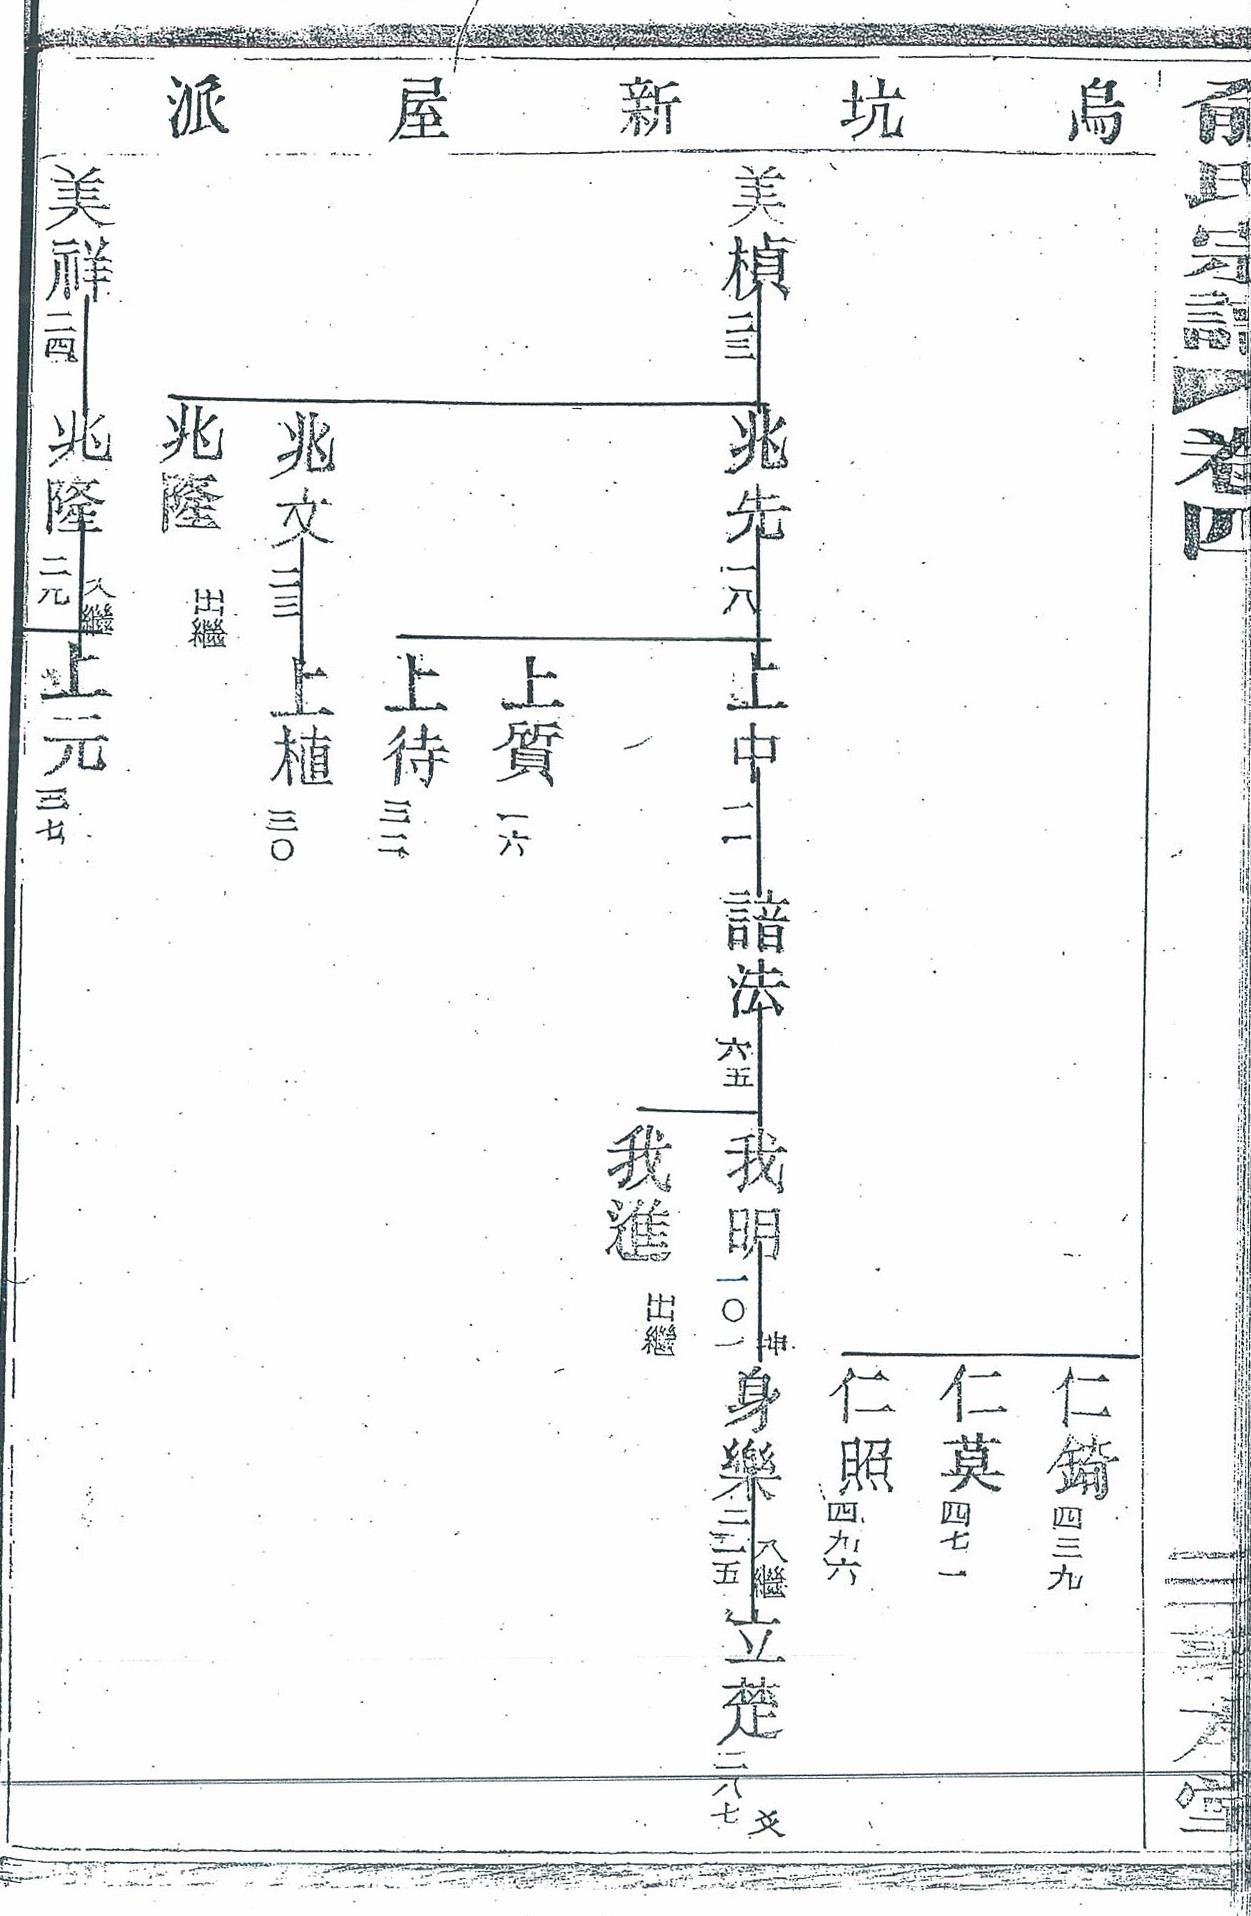 俞氏宗譜 卷四
烏坑新屋派
仁錡 四三九
仁莫 四七一
仁照 四九六
美楨 二三
兆先 一八
上中 二一
諳法 六五
我明 一〇一 坤
身樂 二二五 入繼
立蒞 二八七
我進 出繼
上質 一六
上待 三二
兆文 二三
上植 三〇
兆隆 出繼
美祥 二四
兆隆 二元 入繼
上元 三七